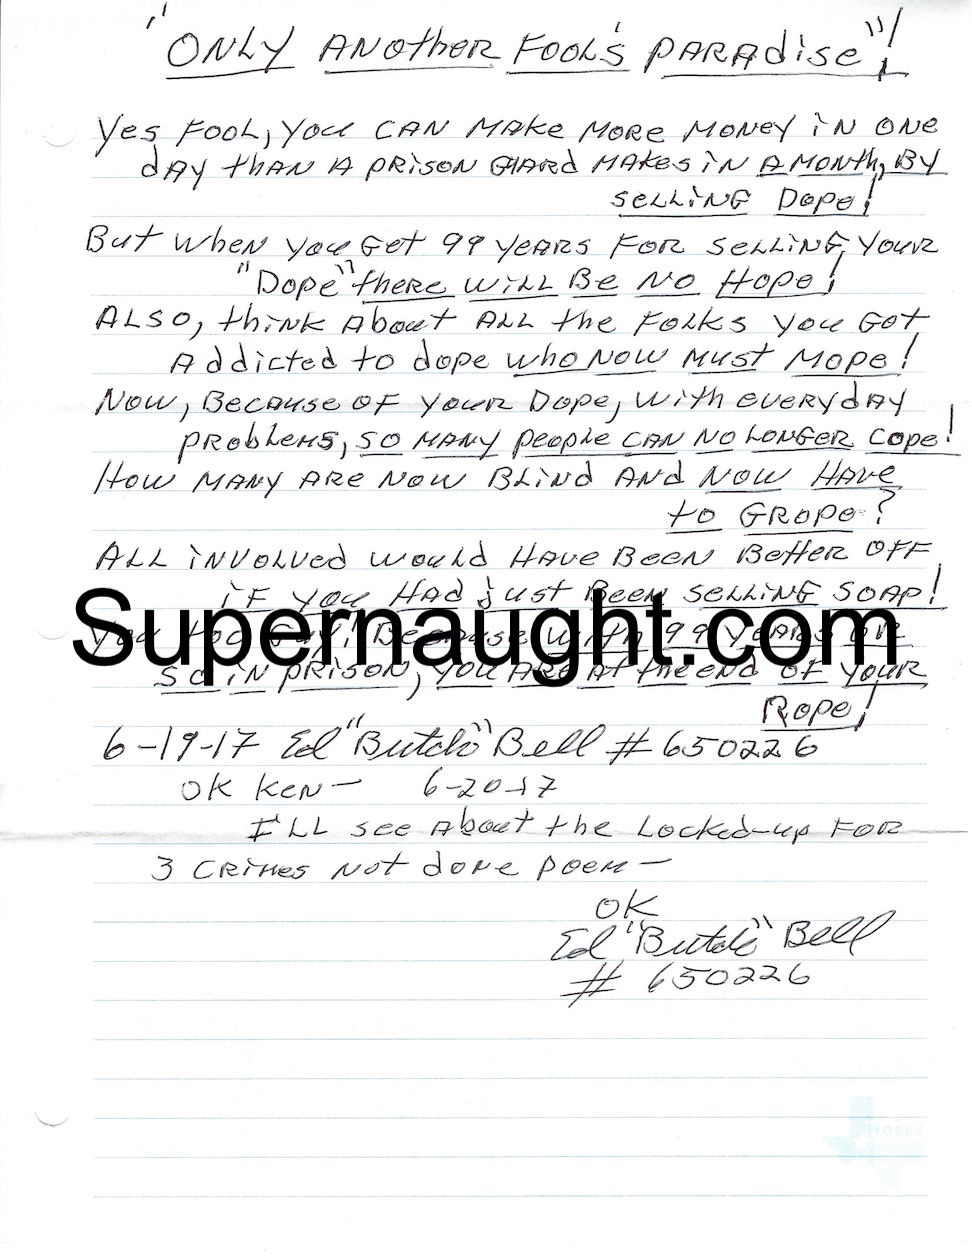 "ONLY ANOTHER FOOL'S PARADISE"!
Yes FOOL, YOU CAN MAKE MORE MONEY IN ONE
dAY thAN A PRISON GUARD MAKES IN A MONTH, BY
SELLING DOPE!
But WHEN YOU Get 99 YEARS FOR SELLING YOUR
"DOPE" theRE WILL BE NO HOPE!
ALSO, thINK AbOut ALL the FOLKS YOU GOT
Addicted to dope WHO NOW MUST MOPE!
NOW, BECAUSE OF YOUR DOPE, WITH EVERYdAY
PROblEMS, SO MANY PEOPLE CAN NO LONGER COPE!
HOW MANY ARE NOW BLINd AND NOW HAVE
tO GROPE?
ALL INVOLVEd WOULd HAVE BEEN BETTER OFF
IF YOU HAd JUST BEEN SELLING SOAP!
Supernaught.com
BECAUSE WITH 99 YEARS OR
SO IN PRISON, YOU ARE At the ENd OF YOUR
ROPE!
6-19-17 Ed "Butch" Bell # 650226
OK KEN— 6-20-17
I'LL SEE AbOUt the LOCKEd-UP FOR
3 CRIMES NOT dONE POEM—
OK
Ed "Butch" Bell
# 650226
HOBBY